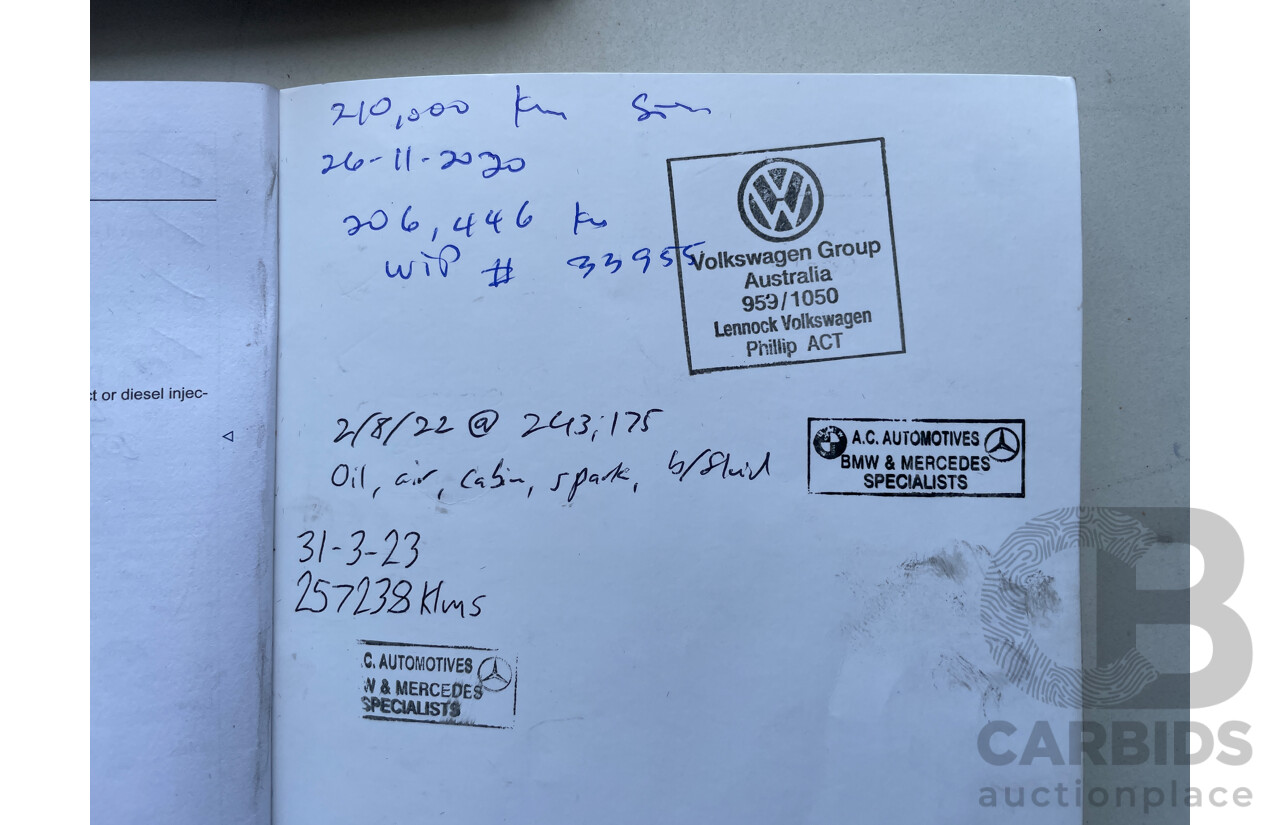 210,000 Km
26-11-2020
206,446 Km
WIP # 33955
Volkswagen Group
Australia
959/1050
Lennock Volkswagen
Phillip ACT
ct or diesel injec-
2/8/22 @ 243,175
Oil, air, cabin, spark, b/fluid
A.C. AUTOMOTIVES
BMW & MERCEDES
SPECIALISTS
31-3-23
257238 Klms
.C. AUTOMOTIVES
W & MERCEDES
SPECIALISTS
CB
CARBIDS
auctionplace